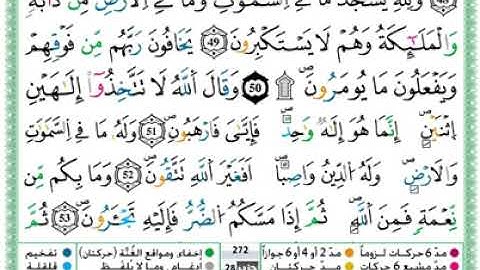 وَلِلهِ يَسْجُدُ مَا فِے اِ۬لسَّمَٰوَٰتِ وَمَا فِے اِ۬لَارْضِ مِن دَآبَّةٖ
وَالْمَلَٰٓئِكَةُ وَهُمْ لَا يَسْتَكْبِرُونَۖ 49 يَخَافُونَ رَبَّهُم مِّن فَوْقِهِمْ
وَيَفْعَلُونَ مَا يُومَرُونَۖ ۩ 50 وَقَالَ اَ۬للَّهُ لَا تَتَّخِذُوٓاْ إِلَٰهَيْنِ
اِ۪ثْنَيْنِۖ إِنَّمَا هُوَ إِلَٰهٞ وَٰحِدٞۖ فَإِيَّٰيَ فَارْهَبُونِۖ 51 وَلَهُۥ مَا فِے اِ۬لسَّمَٰوَٰتِ
وَالَارْضِۖ وَلَهُ اُ۬لدِّينُ وَاصِباًۖ اَفَغَيْرَ اَ۬للَّهِ تَتَّقُونَۖ 52 وَمَا بِكُم مِّن
نِّعْمَةٖ فَمِنَ اَ۬للَّهِۖ ثُمَّ إِذَا مَسَّكُمُ اُ۬لضُّرُّ فَإِلَيْهِ تَجْـَٔرُونَۖ 53 ثُمَّ
مدّ 6 حركات لزوماً مدّ 2 أو 4 أو 6 جوازاً 272 إخفاء، ومواقع الغُنَّة (حركتان) تفخيم
مدّ مشبع 6 حركات مدّ حركتان 28 إدغام، وما لا يُلفَظ قلقلة